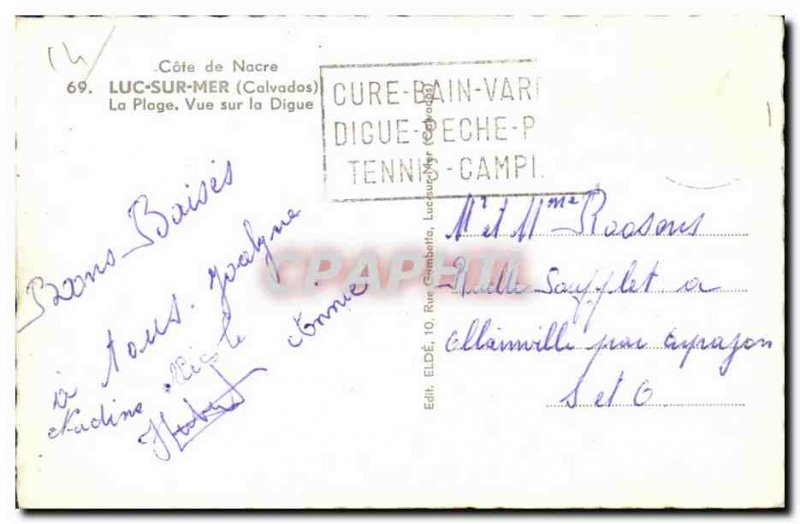 14
Côte de Nacre
69. LUC-SUR-MER (Calvados)
La Plage. Vue sur la Digue
CURE-BAIN-VAR
DIGUE-PECHE-P
TENNIS-CAMPI
Bons Baisés
à tous. Joalyne
Nadine Annie
Hubert
Edit. ELDÉ, 10, Rue Gambetta, Luc-sur-Mer (Calvados)
Mr et Mme Roosens
Ruelle Soufflet a
Ollainville par Arpajon
S et O
CPARAMA